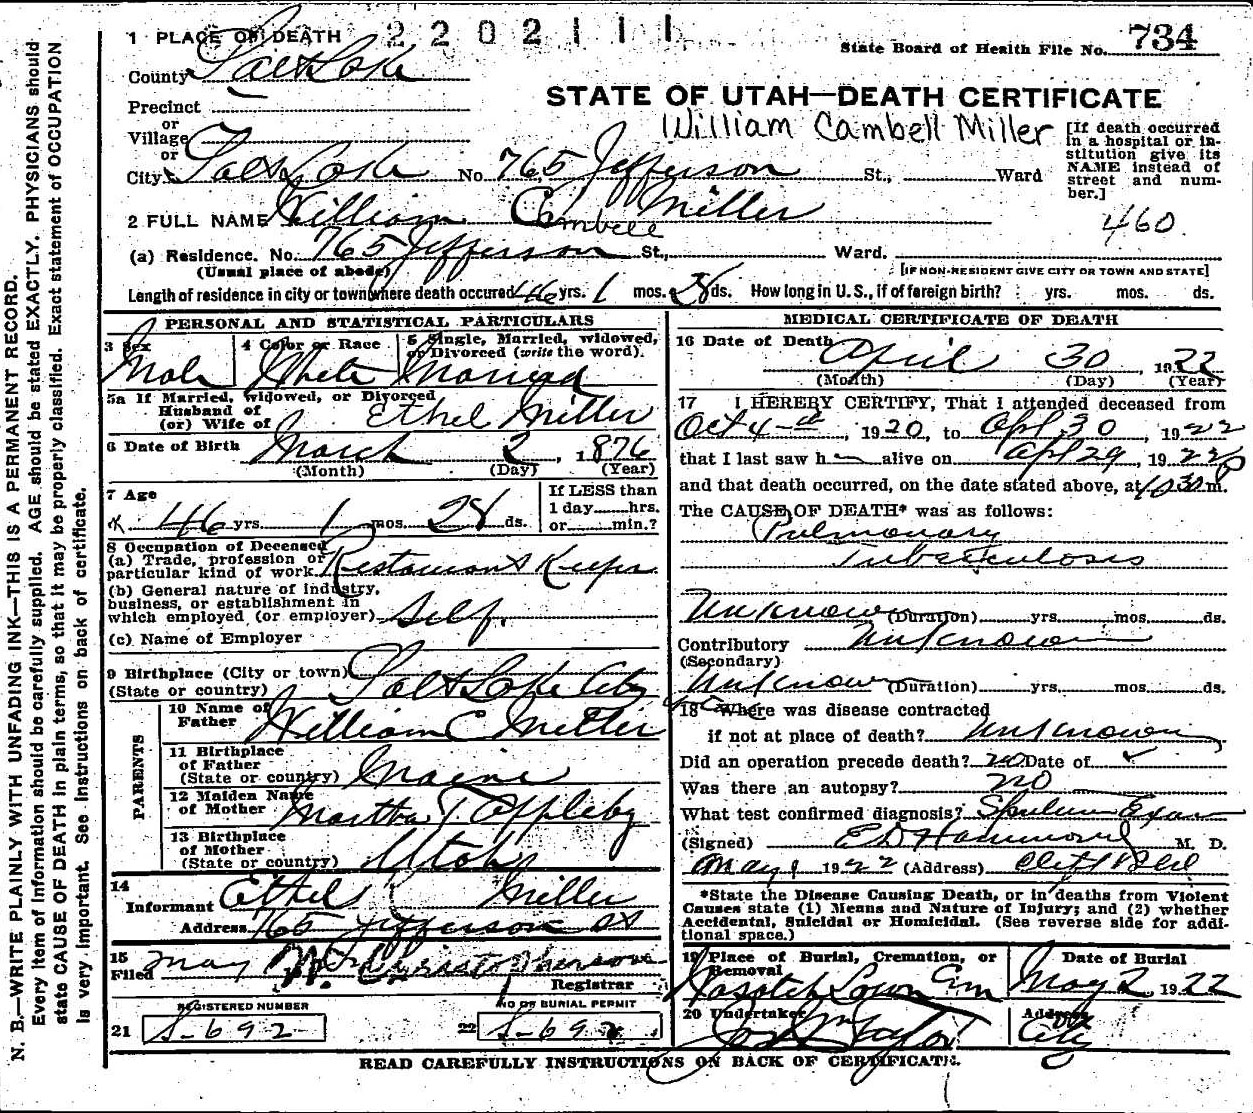 1 PLACE OF DEATH 2202111
State Board of Health File No. 734
County Salt Lake
STATE OF UTAH—DEATH CERTIFICATE
Precinct
or
Village
or
William Cambell Miller
[If death occurred in a hospital or in-
stitution give its
NAME instead of
street and num-
ber.]
City Salt Lake No. 765 Jefferson St., Ward
2 FULL NAME William Cambell Miller
460
(a) Residence. No. 765 Jefferson St., Ward.
(Usual place of abode) [IF NON-RESIDENT GIVE CITY OR TOWN AND STATE]
Length of residence in city or town where death occured 46 yrs. 1 mos. 28 ds. How long in U.S., if of foreign birth? yrs. mos. ds.
PERSONAL AND STATISTICAL PARTICULARS
3 Sex 4 Color or Race 5 Single, Married, widowed,
or Divorced (write the word).
Male White Married
5a If Married, widowed, or Divorced
Husband of
(or) Wife of Ethel Miller
6 Date of Birth March 2, 1876
(Month) (Day) (Year)
7 Age
46 yrs. 1 mos. 28 ds.
If LESS than
1 day hrs.
or min.?
8 Occupation of Deceased
(a) Trade, profession or
particular kind of work Restaurant Keeper
(b) General nature of industry,
business, or establishment in
which employed (or employer) Self.
(c) Name of Employer
9 Birthplace (City or town) Salt Lake City
(State or country)
PARENTS
10 Name of
Father William C Miller
11 Birthplace
of Father
(State or country) Maine
12 Maiden Name
of Mother Martha T. Appleby
13 Birthplace
of Mother
(State or country) Utah
14
Informant Ethel Miller
Address 765 Jefferson St
15
Filed May
Registrar
REGISTERED NUMBER
21 S-692
NO OF BURIAL PERMIT
22 S-692
MEDICAL CERTIFICATE OF DEATH
16 Date of Death April 30, 1922
(Month) (Day) (Year)
17 I HEREBY CERTIFY, That I attended deceased from
Oct 4th, 1920, to Apl 30 1922
that I last saw h alive on Apl 29, 1922
and that death occurred, on the date stated above, at 10 30 p m.
The CAUSE OF DEATH* was as follows:
Pulmonary
Tuberculosis
Unknown (Duration) yrs. mos. ds.
Contributory Unknown
(Secondary)
Unknown (Duration) yrs. mos. ds.
18 Where was disease contracted
if not at place of death? Unknown
Did an operation precede death? No Date of
Was there an autopsy? No
What test confirmed diagnosis? Sputum Exam
(Signed) E D Hammond M. D.
May 1 1922 (Address) Clift Bld
*State the Disease Causing Death, or in deaths from Violent
Causes state (1) Means and Nature of Injury; and (2) whether
Accidental, Suicidal or Homicidal. (See reverse side for addi-
tional space.)
19 Place of Burial, Cremation, or
Removal
Wasatch Lawn Cem
Date of Burial
May 2, 1922
20 Undertaker
Jos Wm Taylor
Address
City
READ CAREFULLY INSTRUCTIONS ON BACK OF CERTIFICATE.
N. B.—WRITE PLAINLY WITH UNFADING INK—THIS IS A PERMANENT RECORD.
Every item of information should be carefully supplied. AGE should be stated EXACTLY. PHYSICIANS should
state CAUSE OF DEATH in plain terms, so that it may be properly classified. Exact statement of OCCUPATION
is very important. See Instructions on back of certificate.